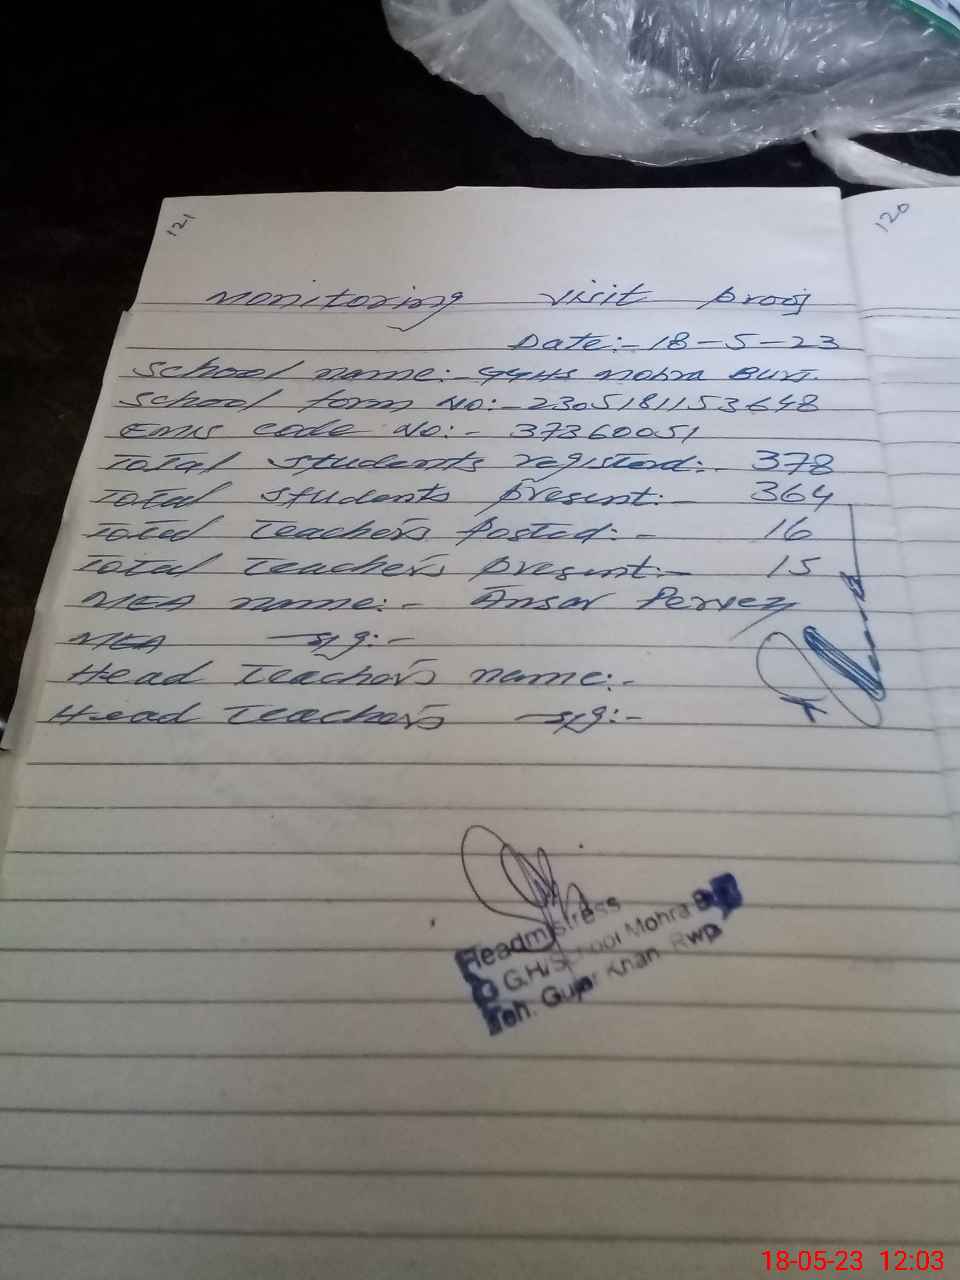 121
120
Monitoring visit proof
Date:- 18-5-23
School name:- GGHS Mohra Bury.
School form No:- 2305181153648
EMIS code No:- 37360051
Total students registerd:- 378
Total students present:- 364
Total Teachers Posted:- 16
Total Teachers present:- 15
MEA name:- Ansar Pervez
MEA sig:-
Head Teacher's name:-
Head Teacher's sig:-
Headmistress
G.H/School Mohra
Teh. Gujar Khan Rwp
18-05-23 12:03